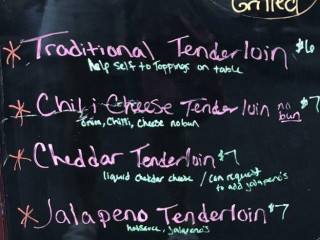 Grilled
* Traditional Tenderloin $6
help self to Toppings on table
* Chili Cheese Tenderloin no bun $7
onion, Chilli, Cheese no bun
* Cheddar Tenderloin $7
liquid cheddar cheese / can request to add jalapeno's
* Jalapeno Tenderloin $7
hotsauce, jalapeno's